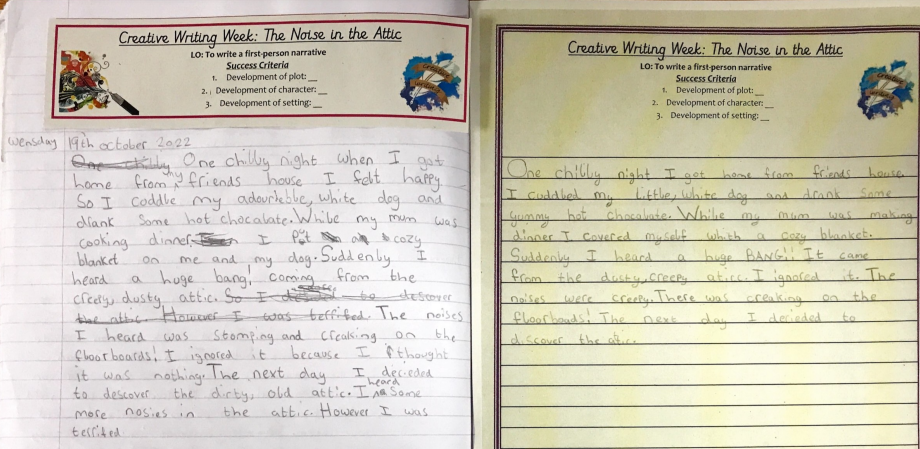 Creative Writing Week: The Noise in the Attic
LO: To write a first-person narrative
Success Criteria
1. Development of plot: __
2. Development of character: __
3. Development of setting: __
Wensday 19th october 2022
One chilly One chilly night when I got
home from my friends house I felt happy
So I coddle my adourkeble, white dog and
drank some hot chocalate. While my mum was
cooking dinner I Put a cozy
blanket on me and my dog. Suddenly I
heard a huge bang! coming from the
creepy, dusty attic. So I to descover
the attic. However I was terrifed. The noises
I heard was stomping and creaking on the
floorboards! I ignored it because I thought
it was nothing. The next day I decieded
to descover the dirty, old attic. I heard some
more nosies in the attic. However I was
terrifed
Creative Writing Week: The Noise in the Attic
LO: To write a first-person narrative
Success Criteria
1. Development of plot: __
2. Development of character: __
3. Development of setting: __
One chilly night I got home from friends house.
I cuddled my little, white dog and drank some
yummy hot chocalate. While my mum was making
dinner I covered myself whith a cozy blanket.
Suddenly I heard a huge BANG!! It came
from the dusty, creepy aticc. I ignored it. The
noises were creepy. There was creaking on the
floorboads! The next day I decieded to
discover the aticc.